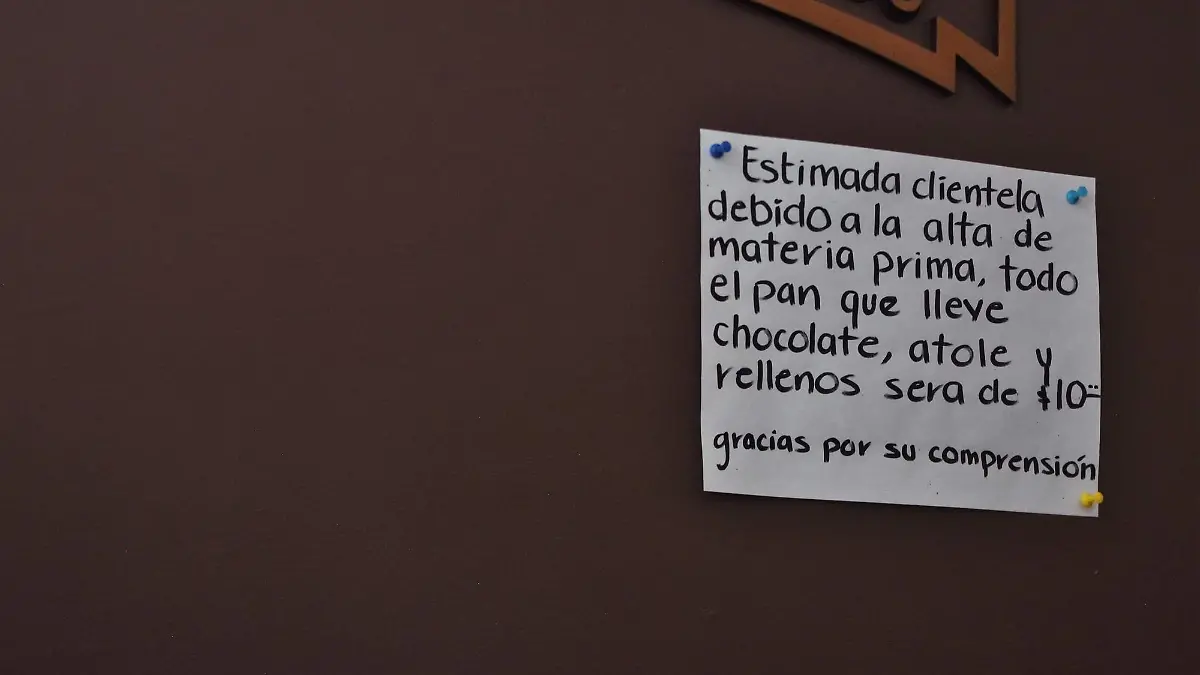 Estimada clientela
debido a la alta de
materia prima, todo
el pan que lleve
chocolate, atole y
rellenos sera de $10=
gracias por su comprensión